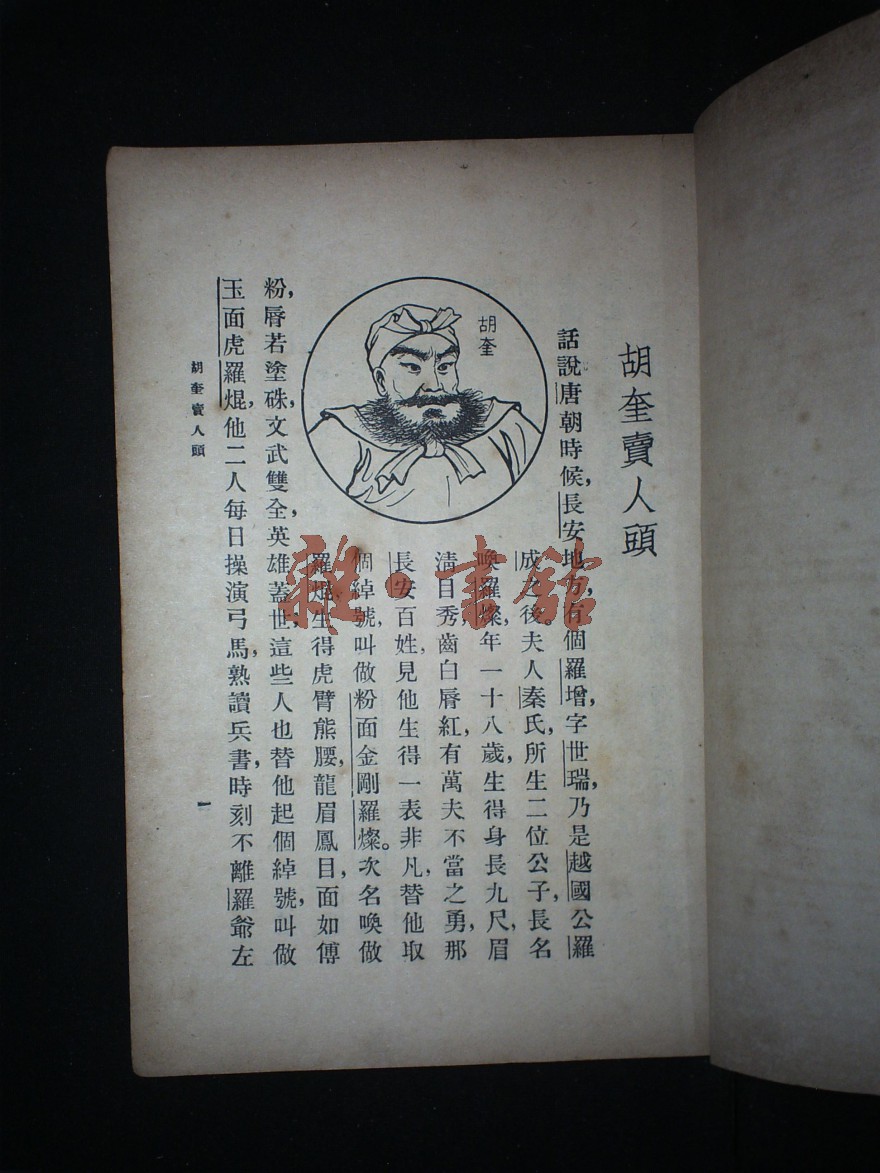 胡奎賣人頭
胡奎
話說唐朝時候，長安地方，有個羅增，字世瑞，乃是越國公羅
成之後夫人秦氏，所生二位公子，長名
喚羅燦，年一十八歲，生得身長九尺，眉
清目秀，齒白唇紅，有萬夫不當之勇，那
長安百姓，見他生得一表非凡，替他取
個綽號，叫做粉面金剛羅燦。次名喚做
羅焜，生得虎臂熊腰，龍眉鳳目，面如傅
粉，唇若塗硃，文武雙全，英雄蓋世，這些人也替他起個綽號，叫做
玉面虎羅焜，他二人每日操演弓馬，熟讀兵書，時刻不離羅爺左
胡奎賣人頭
一
雜·書館